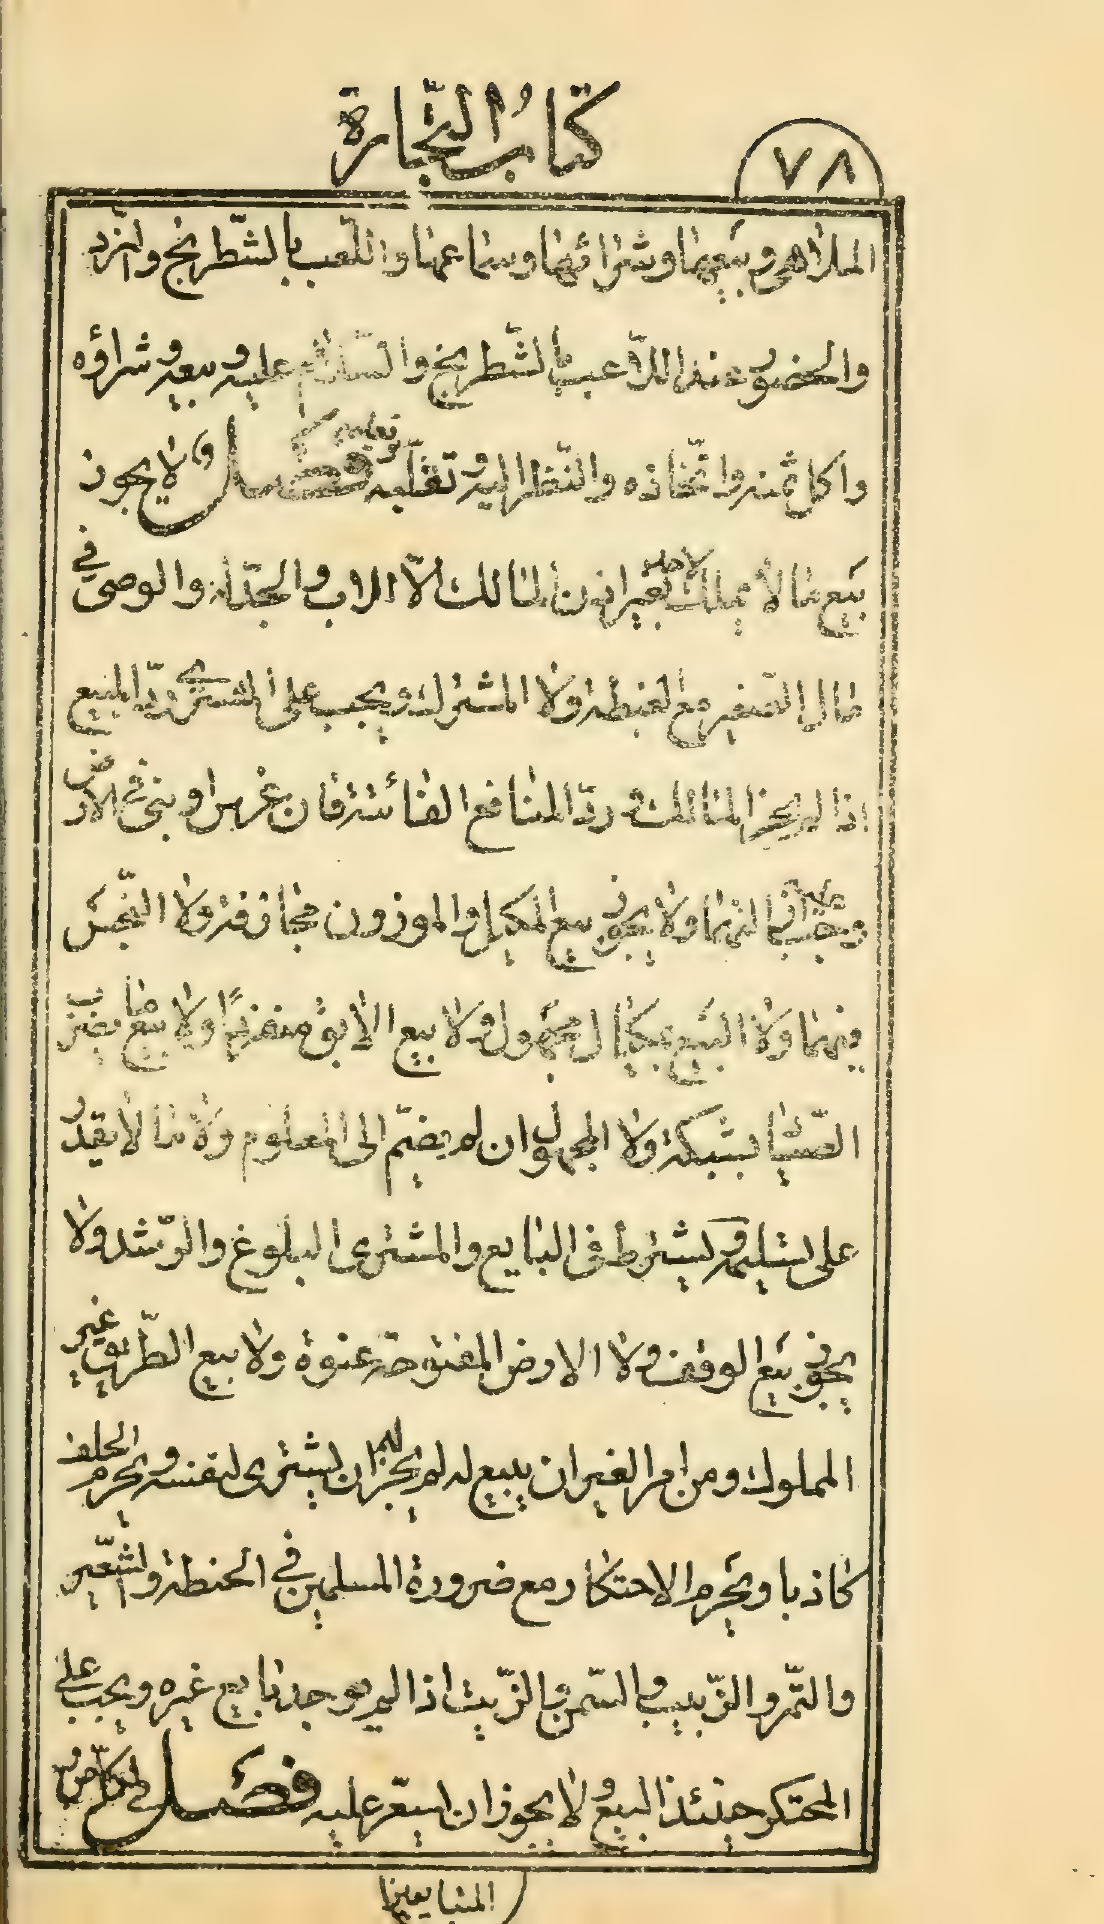 كتابُ التّجارة
٧٨
الملاهي وبيعها وشرائها وسماعها واللّعب بالشّطرنج والنّرد
والحضور عند اللاّعب بالشّطرنج والسّلام عليه وبيعه وشراؤه
واكل ثمنه واتّخاذه والنّظر اليه وتقلّبه وتعليمه فصل ولا يجوز
بيع ما لا يملك بغير اذن المالك الاّ الاب والجدّ له والوصى في
مال الصّغير مع الغبطة ولا المشترك ويجب على المشترى ردّ المبيع
اذا لم يجز المالك وردّ المنافع الفائتة فان غرس او بنى في الارض
وجب عليه ولا يجوز بيع المكيل والموزون مجازفة ولا النّجش
فيهما ولا البيع بمكيال مجهول ولا بيع الابق منفردًا ولا بيع ما يضرب
الصّيّاد بشبكة ولا المجهول ان لم يضمّ الى المعلوم ولا ما لا يقدر
على تسليمه ويشترط في البايع والمشترى البلوغ والرّشد ولا
يجوز بيع الوقف ولا الارض المفتوحة عنوة ولا بيع الطّريق غير
المملوك ومن امر الغير ان يبيع له لم يجز له ان يشترى لنفسه ويحرم الحلف
كاذبا ويحرم الاحتكار مع ضرورة المسلمين في الحنطة والشّعير
والتّمر والزّبيب والسّمن والزّيت اذا لم يوجد بايع غيره ويجب على
المحتكر حينئذ البيع ولا يجوز ان يسعّر عليه فصل
المتبايعين